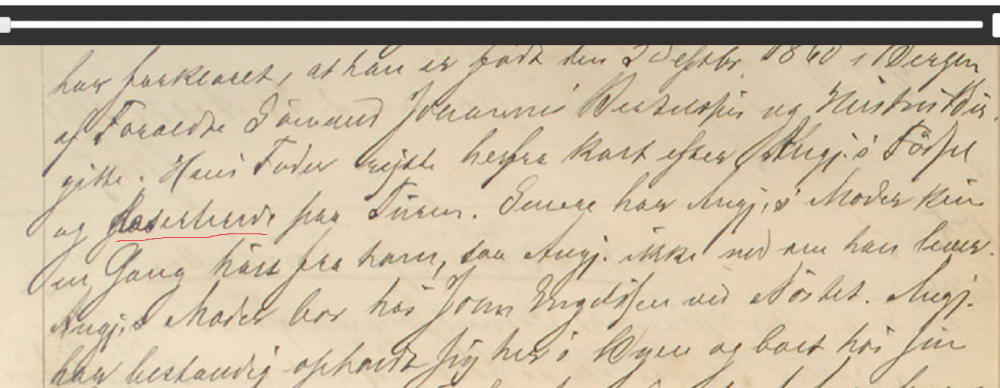 har forklaret, at han er født den 2 Septbr. 1860 i Bergen
af Foreldre Sømand Johannes og Kirstine
gifte. Hans Fader rejste herfra kort efter Angj.s Fødsel
og deserterede paa Turen. Senere har Angj.s Moder kun
en Gang hørt fra ham, saa Angj. ikke ved om han lever.
Angj.s Moder bor hos John Engelsen ved Nøstet. Angj.
har bestandig opholdt sig her i Byen og boet hos sin